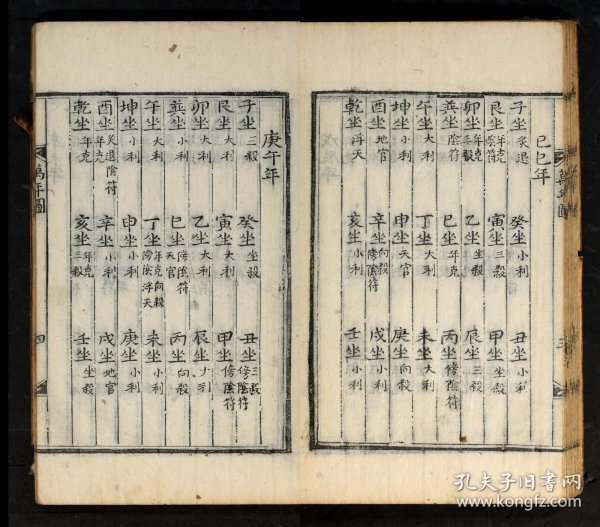 己巳年
子坐 灸退 癸坐 小利 丑坐 小利
艮坐 年克 陰符 寅坐 三殺 甲坐 坐殺
卯坐 年克 三殺 乙坐 坐殺 辰坐 三殺
巽坐 陰符 巳坐 年克 丙坐 傍陰符
午坐 大利 丁坐 大利 未坐 大利
坤坐 小利 申坐 天官 庚坐 向殺
酉坐 地官 辛坐 向殺 傍陰符 戌坐 小利
乾坐 浮天 亥坐 小利 壬坐 小利
萬年圖
三
庚午年
子坐 三殺 癸坐 坐殺 丑坐 三殺 傍陰符
艮坐 大利 寅坐 大利 甲坐 傍陰符
卯坐 大利 乙坐 大利 辰坐 大利
巽坐 小利 巳坐 傍陰符 天官 丙坐 向殺
午坐 大利 丁坐 年克 向殺 傍陰 浮天 未坐 小利
坤坐 小利 申坐 小利 庚坐 小利
酉坐 灸退 陰符 年克 辛坐 小利 戌坐 地官
乾坐 年克 亥坐 年克 三殺 壬坐 坐殺
萬年圖
四
孔夫子旧书网
www.kongfz.com